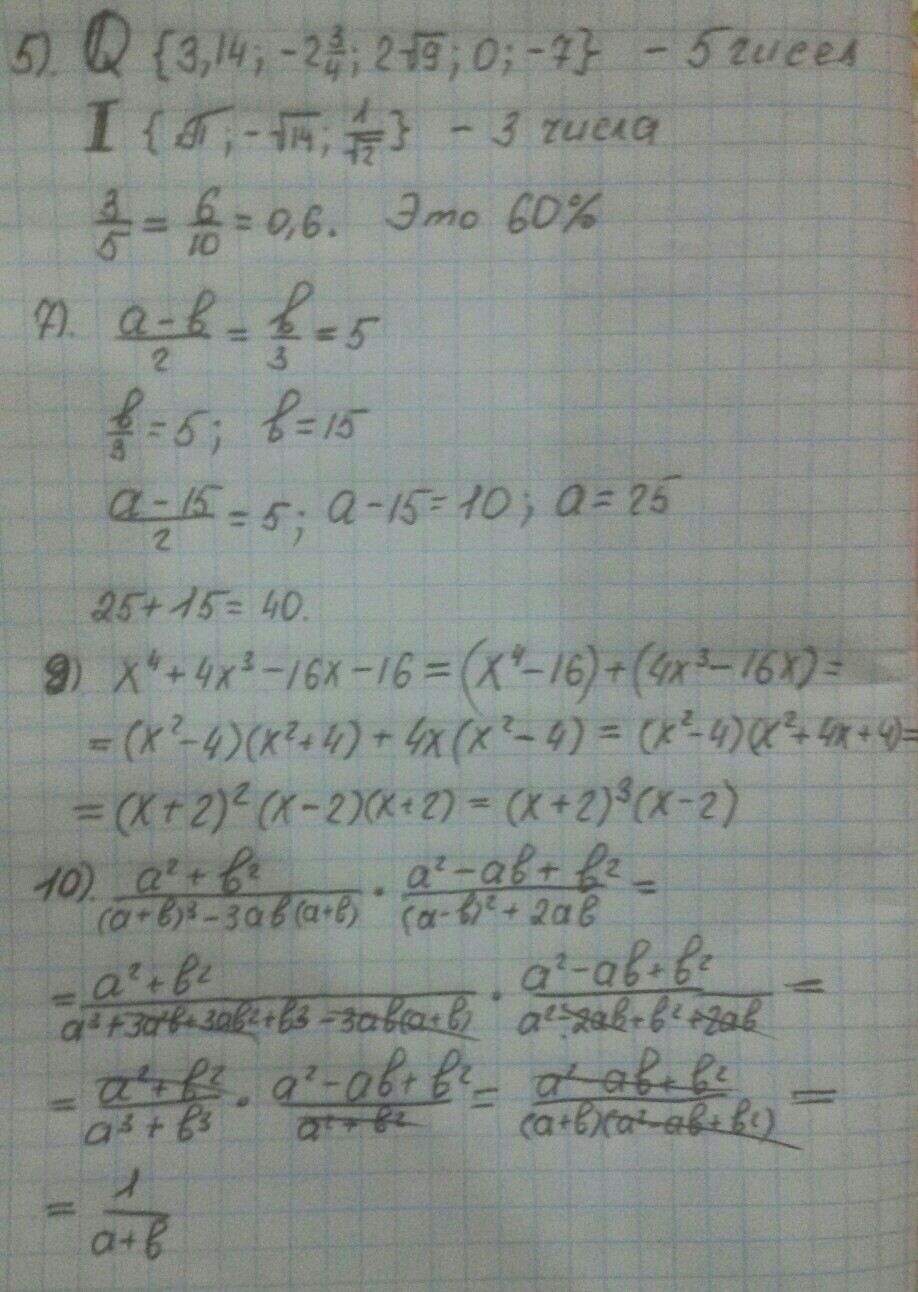 5). Q {3,14; -2 3/4; 2√9; 0; -7} - 5 чисел
I {π; -√14; 1/√2} - 3 числа
3/5 = 6/10 = 0,6. Это 60%
7). (a-b)/2 = b/3 = 5
b/3 = 5; b = 15
(a-15)/2 = 5; a-15 = 10; a = 25
25+15 = 40.
9) x⁴ + 4x³ - 16x - 16 = (x⁴-16) + (4x³-16x) =
= (x²-4)(x²+4) + 4x(x²-4) = (x²-4)(x²+4x+4) =
= (x+2)²(x-2)(x+2) = (x+2)³(x-2)
10). (a²+b²)/((a+b)³-3ab(a+b)) · (a²-ab+b²)/((a-b)²+2ab) =
= (a²+b²)/(a³+3a²b+3ab²+b³-3ab(a+b)) · (a²-ab+b²)/(a²-2ab+b²+2ab) =
= (a²+b²)/(a³+b³) · (a²-ab+b²)/(a²+b²) = (a²-ab+b²)/((a+b)(a²-ab+b²)) =
= 1/(a+b)